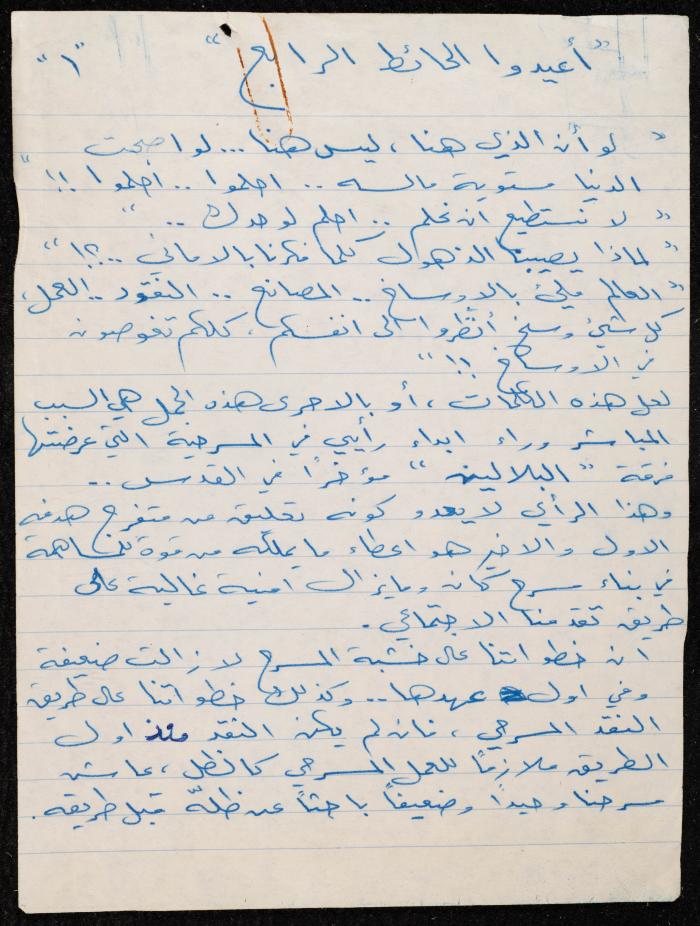 "أعيدوا الحائط الرابع" "١"
" لو أن الذي هنا، ليس هنا... لو اصبحت
الدنيا مستوية مالسه .. احلموا .. احلموا !! "
" لا نستطيع ان نحلم .. احلم لوحدك .. "
" لماذا يصيبنا الذهول كلما فكرنا بالاماني ..؟! "
" العالم مليئ بالاوساخ .. المصانع .. النقود .. العمل،
كل شيئ وسخ أنظروا الى انفسكم، كلكم تغوصون
في الاوساخ !! "
لعل هذه الكلمات، أو بالاحرى هذه الجمل هي السبب
المباشر وراء ابداء رأيي في المسرحية التي عرضتها
فرقة " البلالين " مؤخراً في القدس ..
وهذا الرأي لا يعدو كونه تعليق من متفرج هدفه
الاول والاخير هو اعطاء ما يملكه من قوة للمساهمة
في بناء مسرح كان وما يزال امنية غالية على
طريق تقدمنا الاجتماعي.
ان خطواتنا على خشبة المسرح لا زالت ضعيفة
وفي اول عهدها .. وكذلك خطواتنا على طريق
النقد المسرحي، فان لم يكن النقد منذ اول
الطريق ملازماً للعمل المسرحي كالظل، عاش
مسرحنا وحيداً وضعيفاً باحثاً عن ظلّه قبل طريقه.